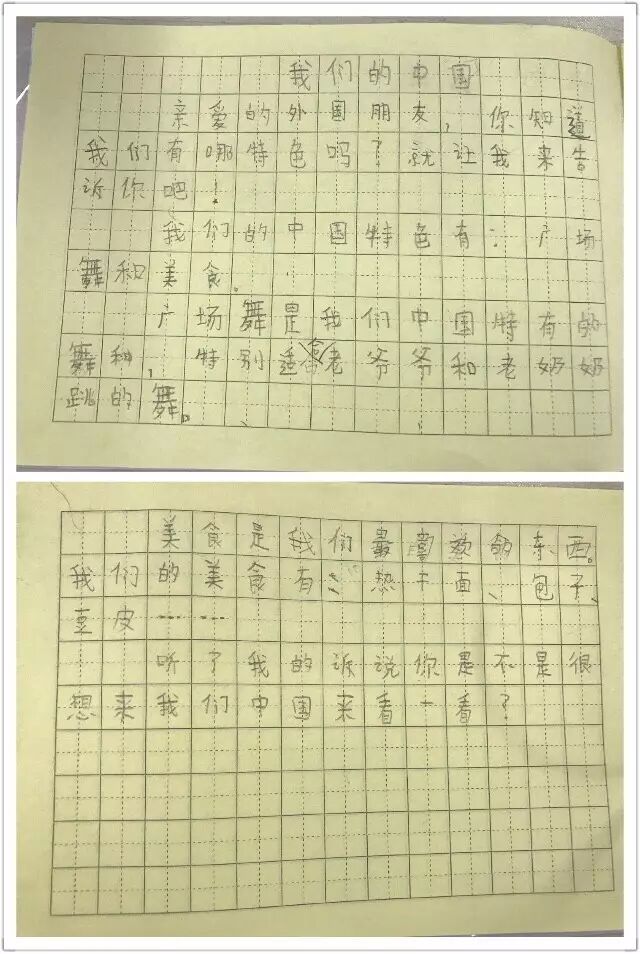 我们的中国
亲爱的外国朋友,你知道
我们有哪特色吗?就让我来告
诉你吧!
我们的中国特色有:广场
舞和美食。
广场舞是我们中国特有的
舞种,特别适合老爷爷和老奶奶
跳的舞。
美食是我们最喜欢的东西。
我们的美食有:热干面、包子、
豆皮------
听了我的诉说你是不是很
想来我们中国来看一看?